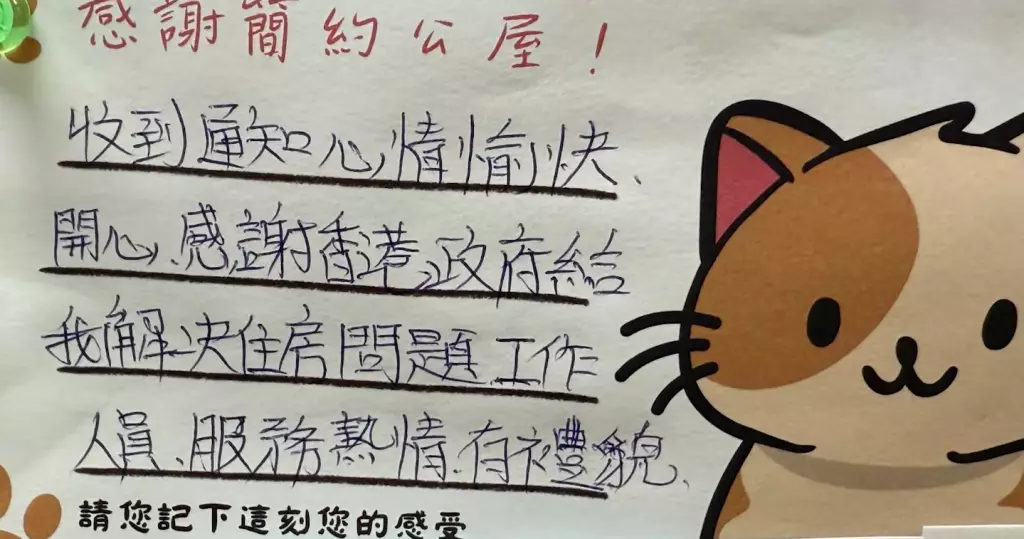 感謝簡約公屋！
收到通知心情愉快、
開心、感謝香港政府給
我解决住房問題、工作
人員、服務熱情、有禮貌、
請您記下這刻您的感受